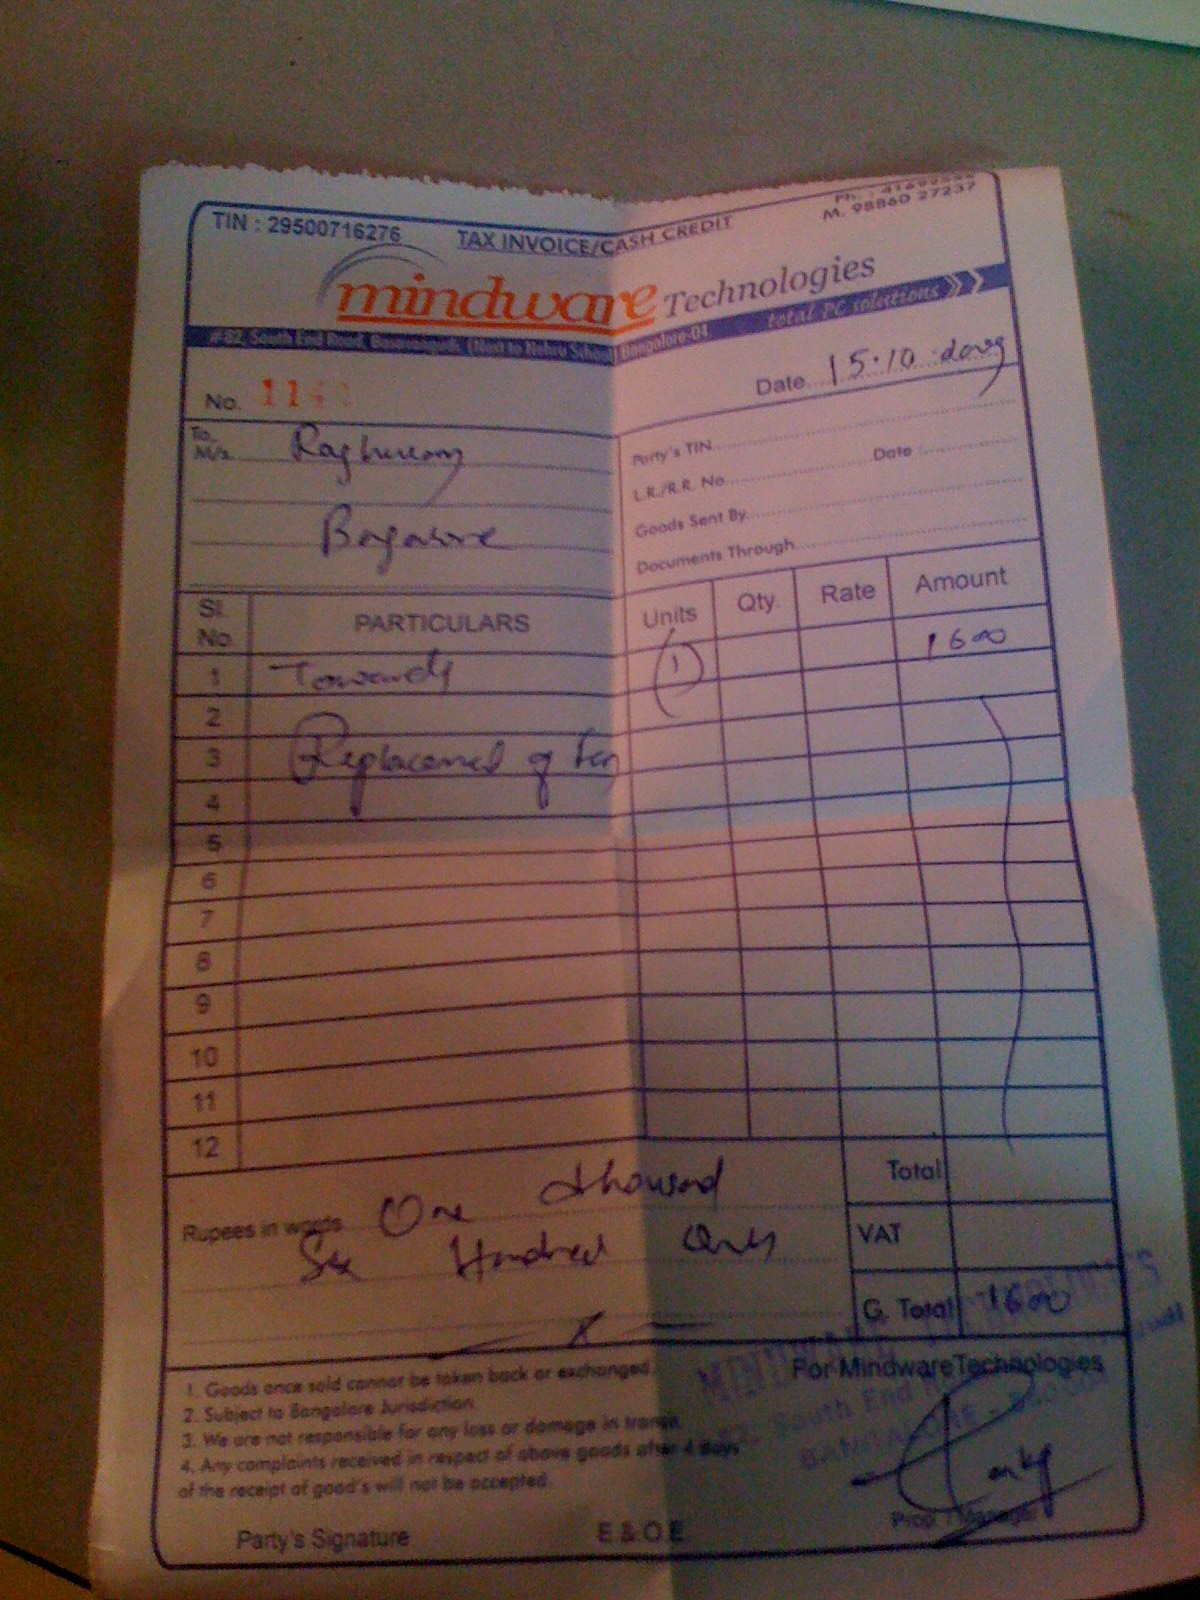 TIN : 29500716276 TAX INVOICE/CASH CREDIT
M. 98860 27237
mindware Technologies
total PC solutions
#82, South End Road, Basavanagudi, (Next to Nehru School) Bangalore-04
No. 114
Date 15.10.2009
To, M/s. Raghuram
Party's TIN
L.R./R.R. No. Date :
Goods Sent By
Documents Through
Sl. No. PARTICULARS Units Qty. Rate Amount
1 Towards (1) 1600
2
3 Replacement of Fan
4
5
6
7
8
9
10
11
12
Rupees in words One thousand
Six Hundred Only
Total
VAT
G. Total 1600
For Mindware Technologies
1. Goods once sold cannot be taken back or exchanged.
2. Subject to Bangalore Jurisdiction.
3. We are not responsible for any loss or damage in transit.
4. Any complaints received in respect of above goods after 4 days
of the receipt of good's will not be accepted.
MINDWARE TECHNOLOGIES
82, South End
BANGALORE -
Prop. / Manager
Party's Signature E & O E